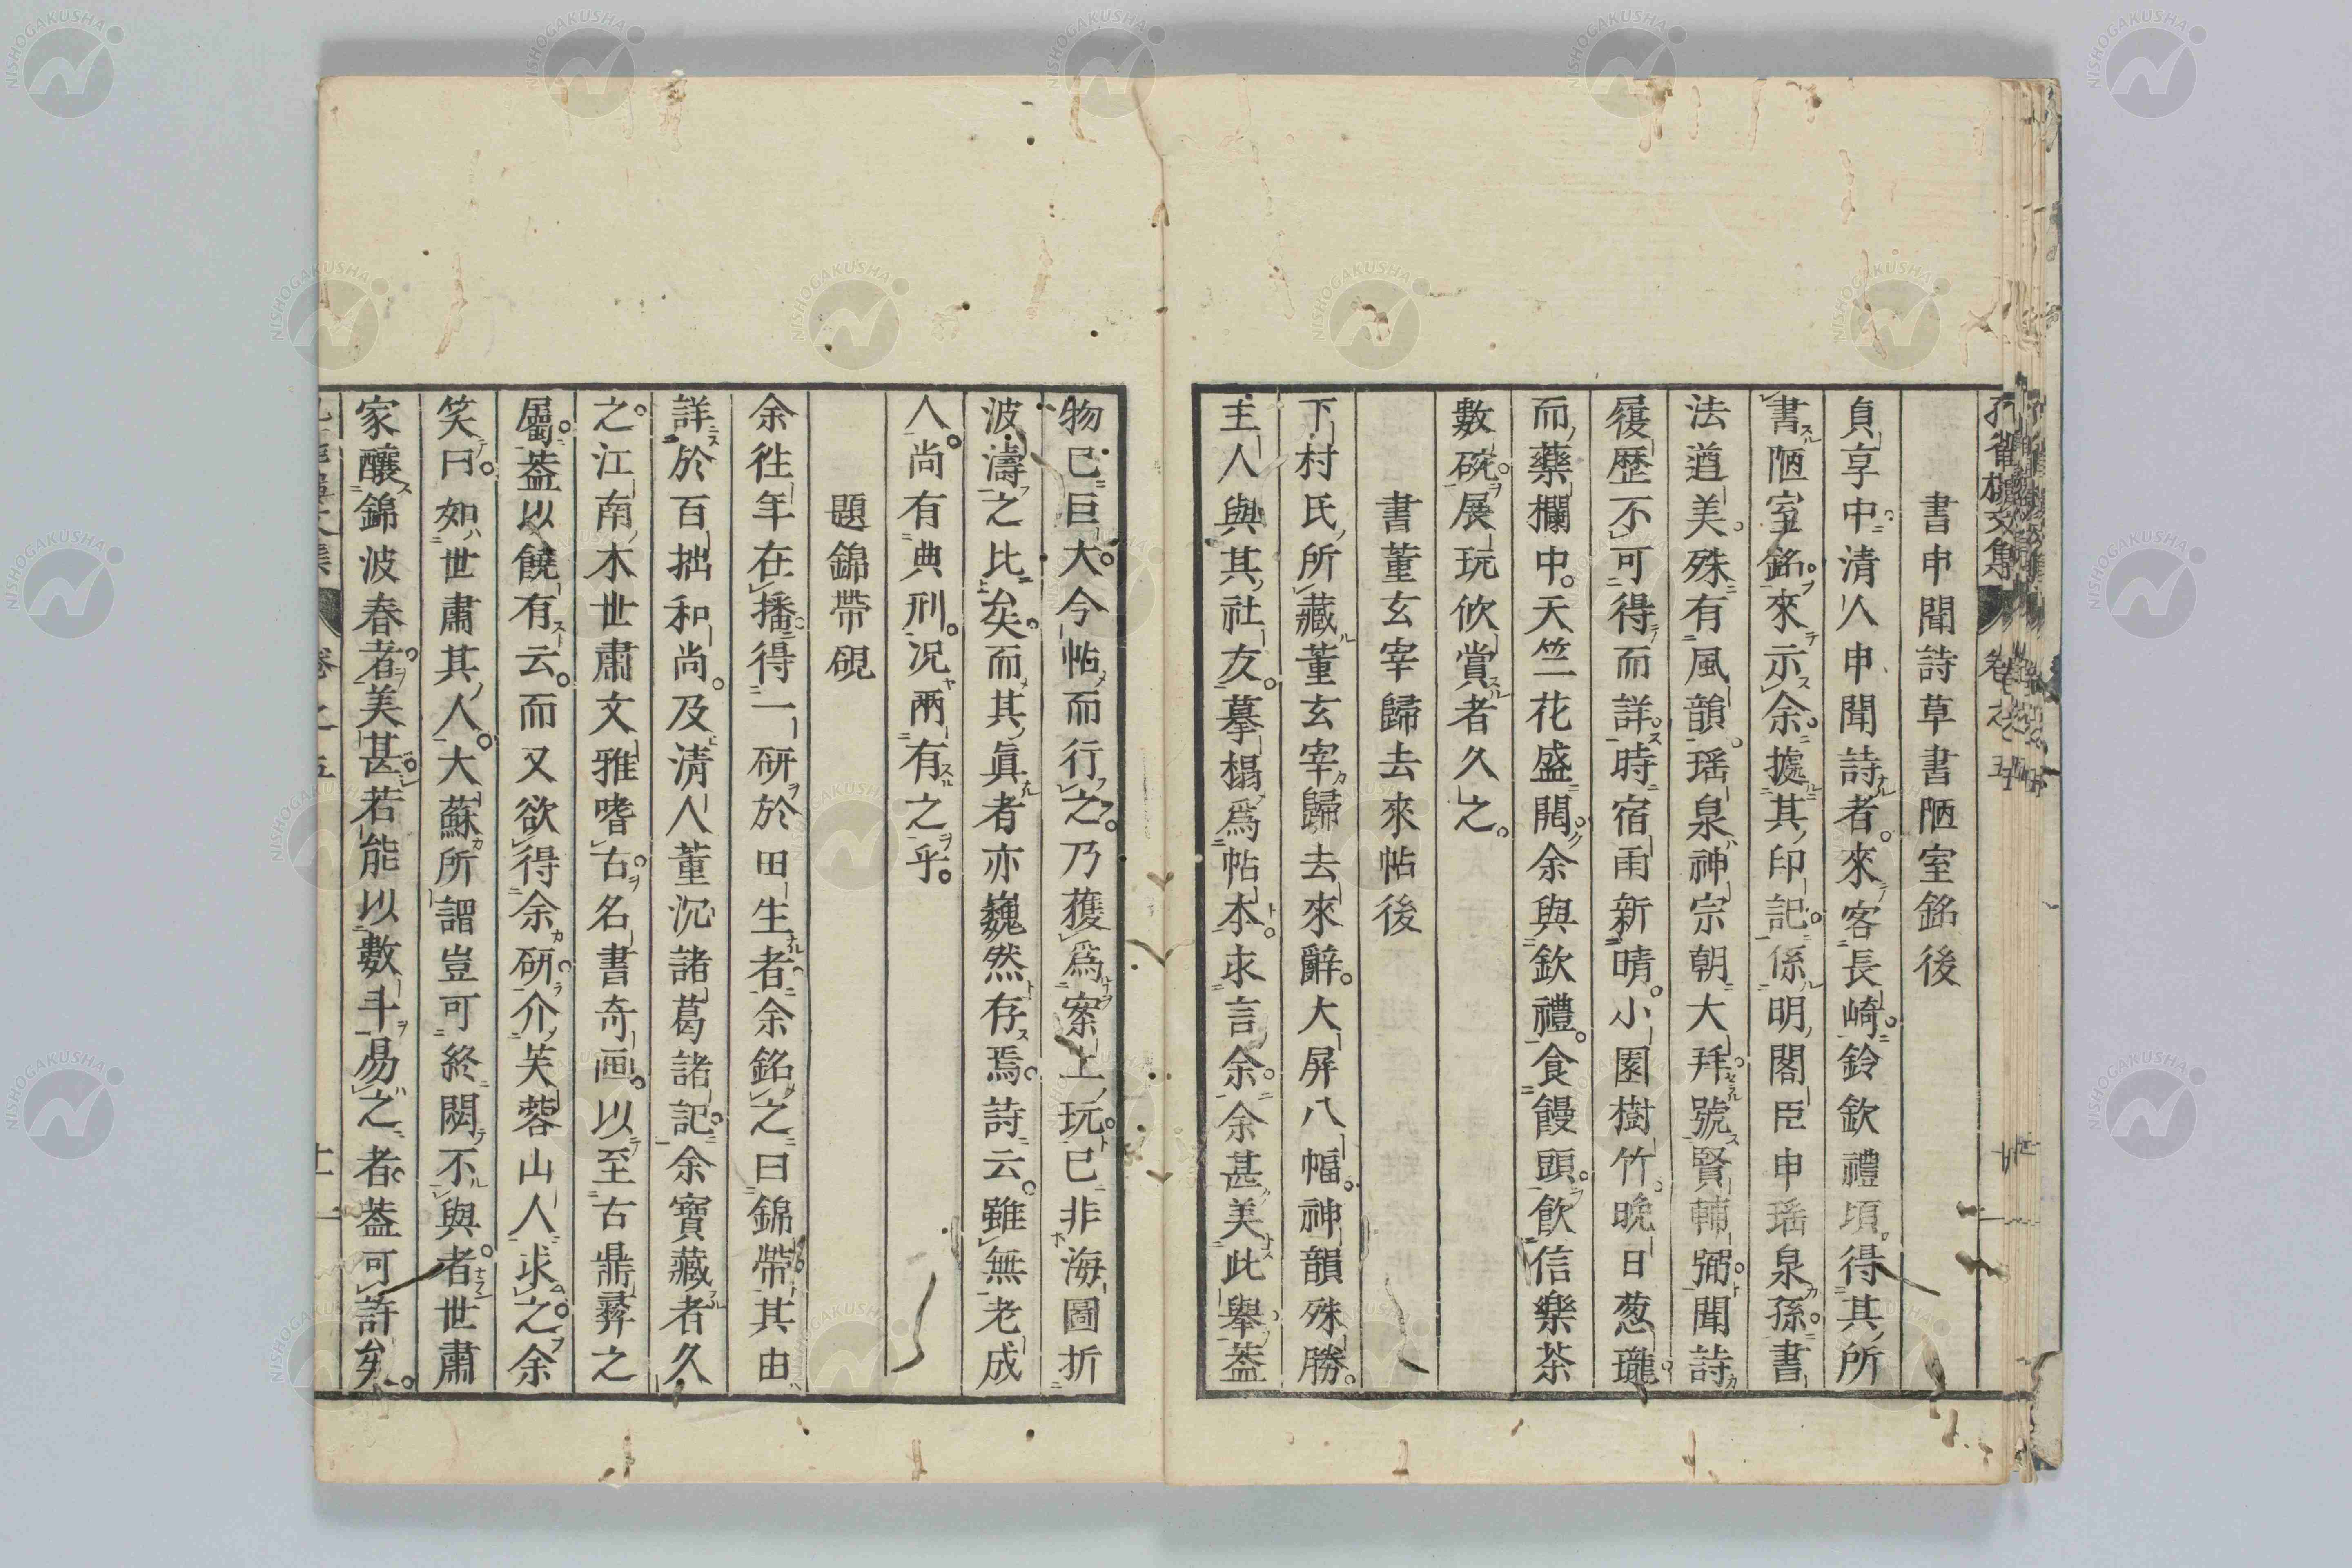 孔雀樓文集 卷之五
書申聞詩草書陋室銘後
貞享中清人申聞詩者來客長崎鈴欽禮頃得其所
書陋室銘來示余據其印記係明閣臣申瑤泉孫書
法遒美殊有風韻瑤泉神宗朝大拜號賢輔弼聞詩
履歷不可得而詳時宿雨新晴小園樹竹晚日葱瓏
而藥欄中天竺花盛開余與欽禮食饅頭飲信樂茶
數碗展玩欣賞者久之
書董玄宰歸去來帖後
下村氏所藏董玄宰歸去來辭大屏八幅神韻殊勝
主人與其社友摹榻爲帖本求言余余甚美此舉葢
物已巨大今帖而行之乃獲爲案上玩已非海圖折
波濤之比矣而其眞者亦巍然存焉詩云雖無老成
人尚有典刑況兩有之乎
題錦帶硯
余徃年在播得一研於田生者余銘之曰錦帶其由
詳於百拙和尚及清人董沉諸葛諸記余寶藏者久
之江南木世肅文雅嗜古名書奇画以至古鼎彛之
屬葢以饒有云而又欲得余研介芙蓉山人求之余
笑曰如世肅其人大蘇所謂豈可終閟不與者世肅
家釀錦波春者美甚若能以數斗易之者葢可許矣
NISHOGAKUSHA